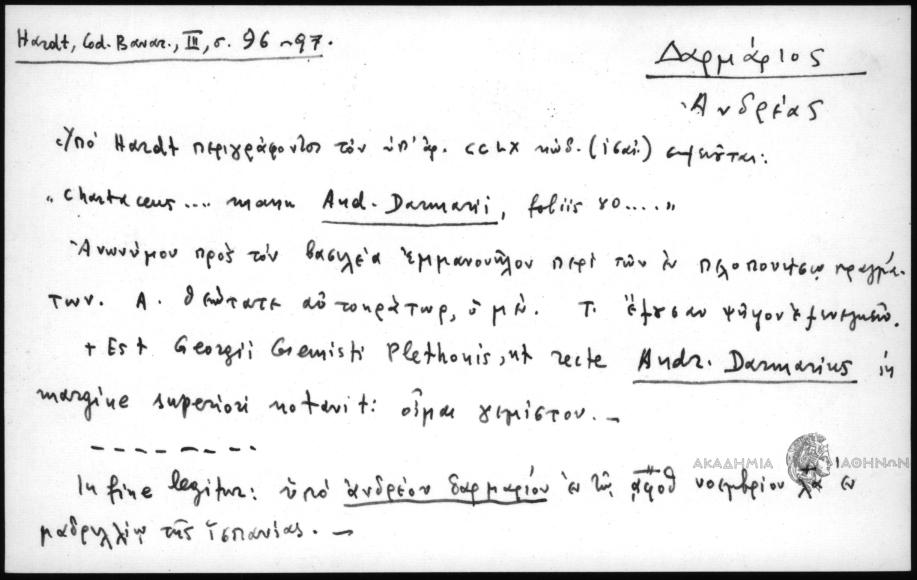 Hardt, Cod. Bavar., III, σ. 96-97.
Δαρμάριος
Ἀνδρέας
Ὑπό Hardt περιγράφοντος τόν ὑπ' ἀρ. κώδ.
"Chartaceus .... manu And. Darmarii, foliis 80 .... "
Ἀνωνύμου πρός τόν βασιλέα ἐμμανουῆλον περί τῶν ἐν πελοποννήσῳ πραγμά-
των. Α. θειότατε αὐτοκράτωρ, ὁ μέν. Τ.
+ Est Georgii Gemisti Plethonis, ut recte Andr. Darmarius in
margine superiori notavit: οἶμαι γεμίστου. —
In fine legitur: ὑπό ἀνδρέου δαρμαρίου ἐν τῷ ͵αφοθ νοεμβρίου λα ἐν
μαδρυλλίῳ τῆς ἱσπανίας. —
ΑΚΑΔΗΜΙΑ ΑΘΗΝΩΝ